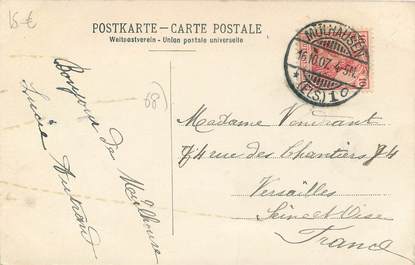 15 -€
POSTKARTE — CARTE POSTALE
Weltpostverein - Union postale universelle
MÜLHAUSEN
16.10.07. 4-5N.
* (ELS) 1 c
(68)
Bonjour de Mulhouse
Lucie
Madame Vendrant
74 rue des Chantiers 74
Versailles
Seine et Oise
France